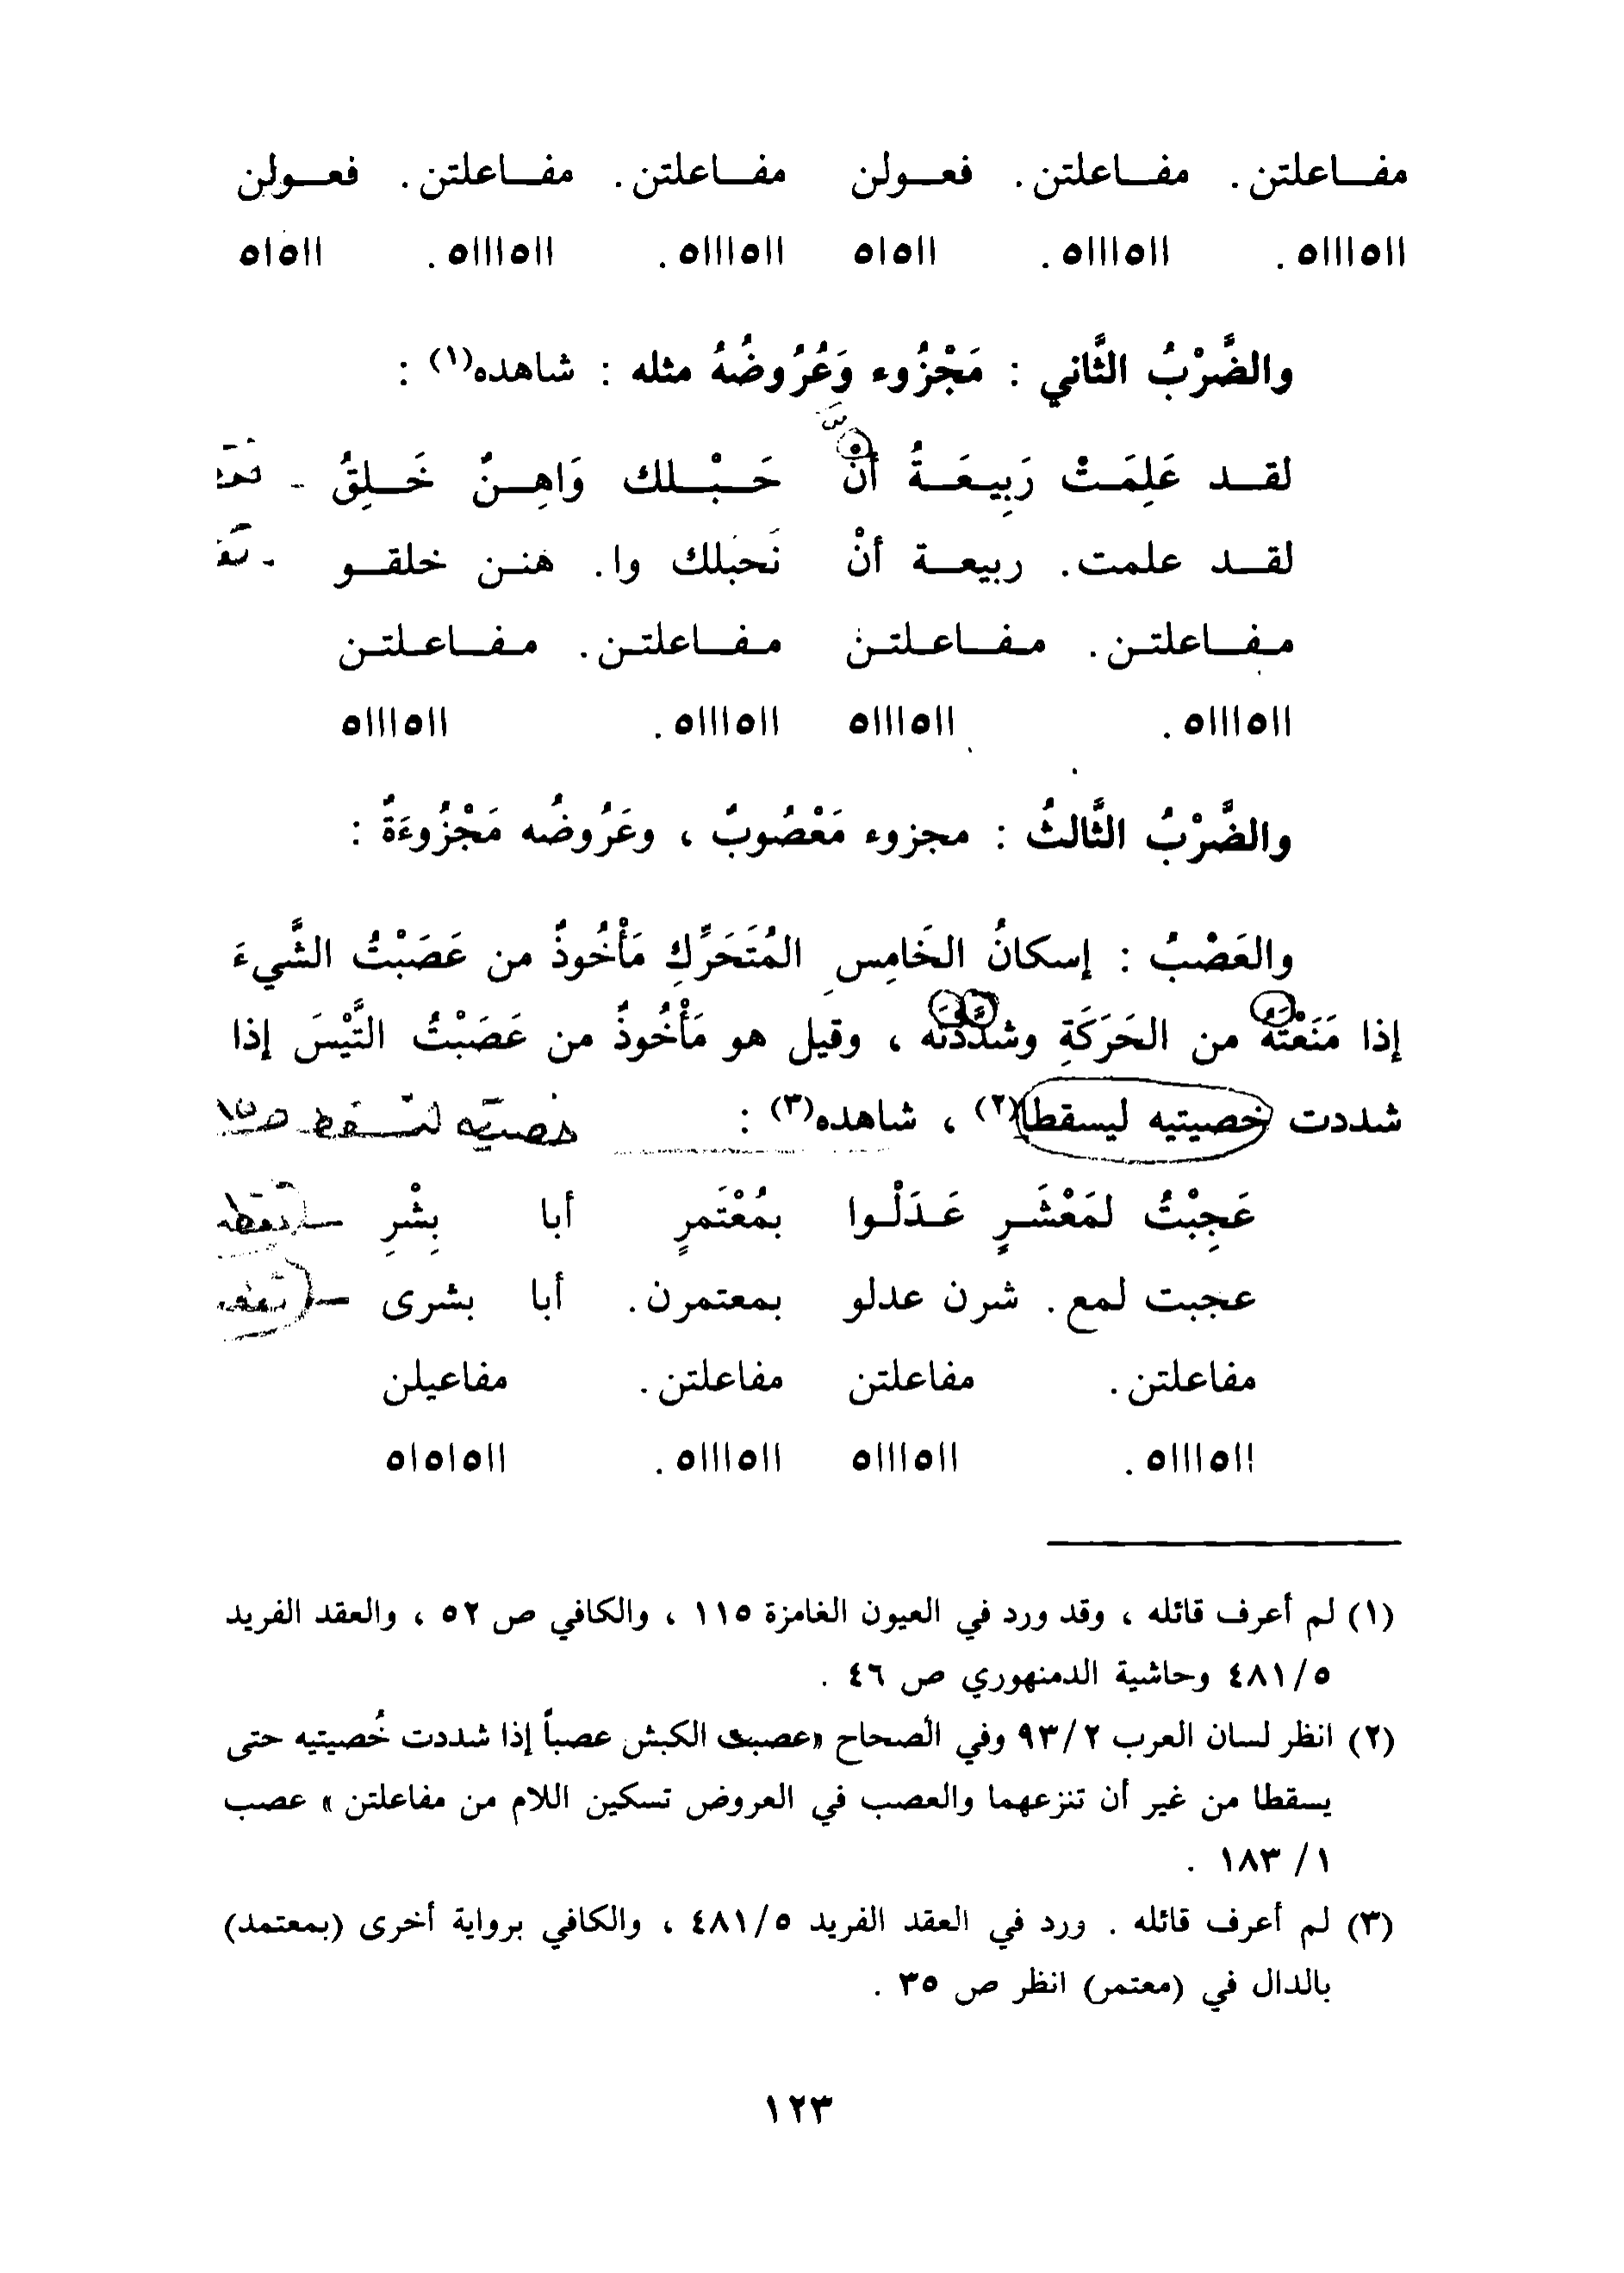 مفـاعلتن . مفـاعلتن . فعـولن مفـاعلتن . مفـاعلتن . فعـولن
ااه١١١ه . ااه١١١ه . ااه١ه ااه١١١ه . ااه١١١ه . ااه١ه
والضَّرْبُ الثَّاني : مَجْزُوء وَعُرُوضُهُ مثله : شاهده(١) :
لقـد عَلِمَتْ رَبِيعَـةُ أنْ حَـبْـلك وَاهِـنٌ خَـلِقُ
لقـد علمت . ربيعـة أنْ نَحبلك وا . هنـن خلقـو
مـفـاعلتـن . مـفـاعـلتـن مـفـاعلتـن . مـفـاعـلتـن
ااه١١١ه . ااه١١١ه ااه١١١ه . ااه١١١ه
والضَّرْبُ الثَّالثُ : مجزوء مَعْصُوبٌ ، وعَرُوضُه مَجْزُوءَةٌ :
والعَصْبُ : إسكانُ الخَامِسِ المُتَحَرِّكِ مَأْخُوذٌ من عَصَبْتُ الشَّيءَ
إذا مَنَعْتَه من الحَرَكَةِ وشدَّدْتَه ، وقيل هو مَأْخُوذٌ من عَصَبْتُ التَّيْسَ إذا
شددت خصيتيه ليسقطا(٢) ، شاهده(٣) :
عَجِبْتُ لمَعْشَـرٍ عَـدَلْـوا بمُعْتَمرٍ أبا بِشْرِ
عجبت لمع . شرن عدلو بمعتمرن . أبا بشرى
مفاعلتن . مفاعلتن مفاعلتن . مفاعيلن
ااه١١١ه . ااه١١١ه ااه١١١ه . ااه١ه١ه
(١) لم أعرف قائله ، وقد ورد في العيون الغامزة ١١٥ ، والكافي ص ٥٢ ، والعقد الفريد
٤٨١/٥ وحاشية الدمنهوري ص ٤٦ .
(٢) انظر لسان العرب ٩٣/٢ وفي الصحاح «عصبت الكبش عصباً إذا شددت خُصيتيه حتى
يسقطا من غير أن تنزعهما والعصب في العروض تسكين اللام من مفاعلتن » عصب
١/ ١٨٣ .
(٣) لم أعرف قائله . ورد في العقد الفريد ٤٨١/٥ ، والكافي برواية أخرى (بمعتمد)
بالدال في (معتمر) انظر ص ٣٥ .
١٢٣